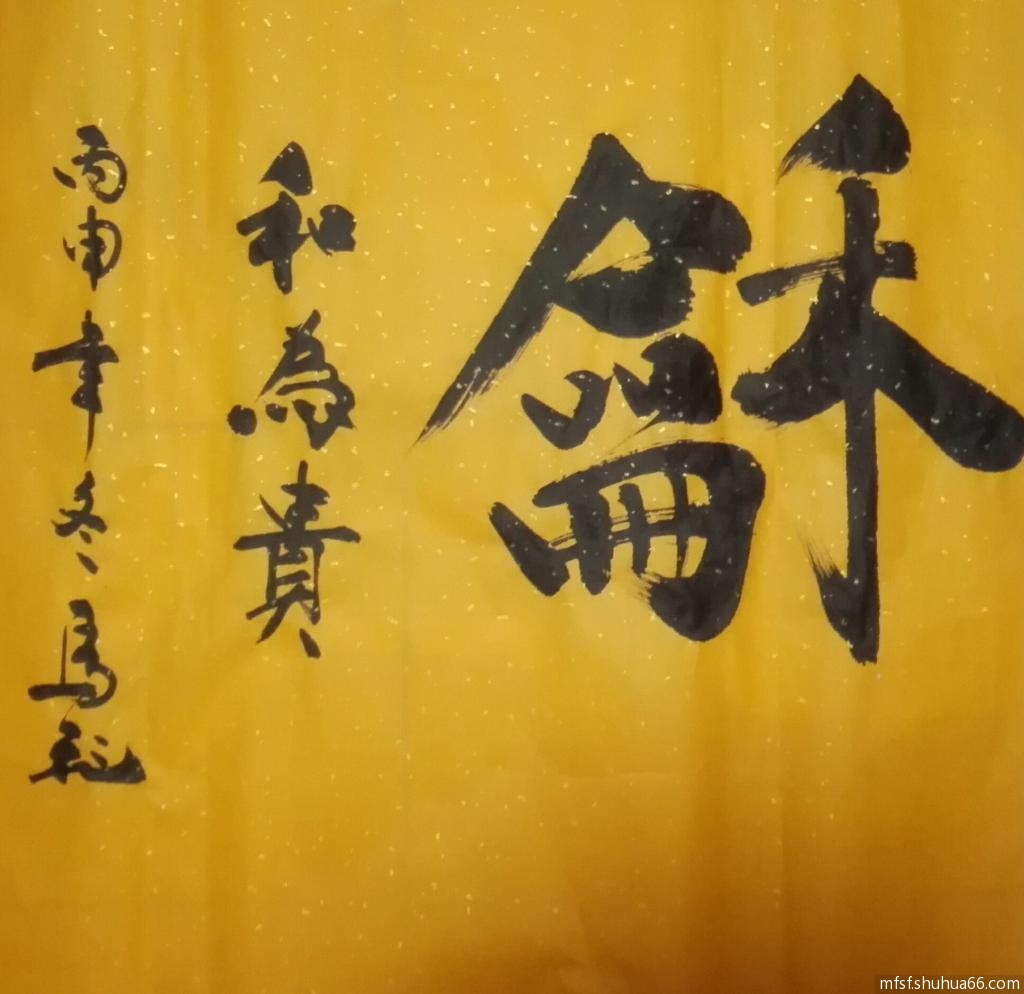 龢
和為貴
丙申年冬馬
mfsf.shuhua66.com